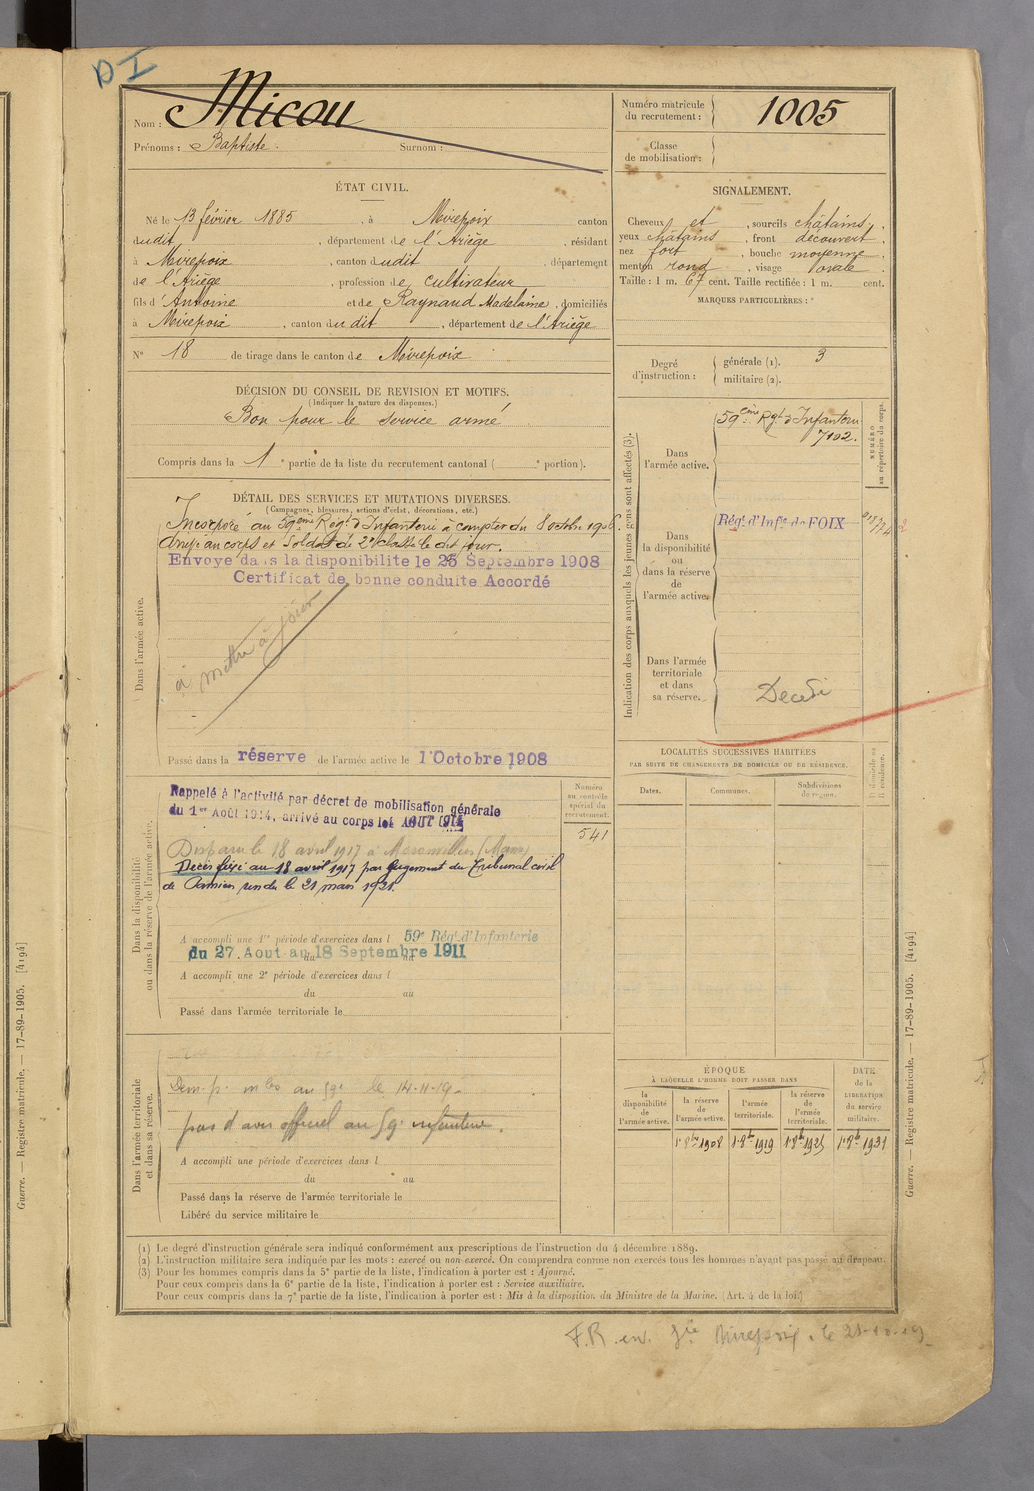 D I
Nom : Micou
Prénoms : Baptiste. Surnom :
Numéro matricule du recrutement : 1005
Classe de mobilisation :
ÉTAT CIVIL.
Né le 13 février 1885, à Mirepoix canton
dudit, département de l'Ariège, résidant
à Mirepoix, canton dudit, département
de l'Ariège, profession de cultivateur
fils d'Antoine et de Raynaud Madelaine, domiciliés
à Mirepoix, canton dudit, département de l'Ariège
N° 18 de tirage dans le canton de Mirepoix
SIGNALEMENT.
Cheveux et, sourcils châtains,
yeux châtains, front découvert,
nez fort, bouche moyenne,
menton rond, visage ovale.
Taille : 1 m. 67 cent. Taille rectifiée : 1 m. cent.
MARQUES PARTICULIÈRES :
Degré d'instruction : générale (1). 3
militaire (2).
DÉCISION DU CONSEIL DE REVISION ET MOTIFS.
(Indiquer la nature des dispenses.)
Bon pour le service armé
Compris dans la 1e partie de la liste du recrutement cantonal ( e portion).
DÉTAIL DES SERVICES ET MUTATIONS DIVERSES.
(Campagnes, blessures, actions d'éclat, décorations, etc.)
Dans l'armée active.
Incorporé au 59ème Régt d'Infanterie à compter du 8 octobre 1906.
Arrivé au corps et Soldat de 2e classe le dit jour.
Envoyé dans la disponibilité le 25 Septembre 1908
Certificat de bonne conduite Accordé
à mettre à jour
Passé dans la réserve de l'armée active le 1er Octobre 1908
Indication des corps auxquels les jeunes gens sont affectés (3).
NUMÉRO au répertoire du corps.
Dans l'armée active.
59ème Rgt d'Infanterie
7102.
Dans la disponibilité ou dans la réserve de l'armée active.
Régt d'Infie de FOIX
Dans l'armée territoriale et dans sa réserve.
Décédé
LOCALITÉS SUCCESSIVES HABITÉES
PAR SUITE DE CHANGEMENTS DE DOMICILE OU DE RÉSIDENCE.
D. domicile ou R. résidence.
Dates. Communes. Subdivisions de région.
Dans la disponibilité ou dans la réserve de l'armée active.
Numéro au contrôle spécial du recrutement.
541
Rappelé à l'activité par décret de mobilisation générale
du 1er Août 1914, arrivé au corps le 4 AOUT 1914
Disparu le 18 avril 1917 à Moronvillers (Marne)
Décès fixé au 18 avril 1917 par jugement du Tribunal civil
de Pamiers rendu le 21 mars 1921
A accompli une 1re période d'exercices dans l 59e Régt d'Infanterie
du 27 Aout au 18 Septembre 1911
A accompli une 2e période d'exercices dans l
du au
Passé dans l'armée territoriale le
Dans l'armée territoriale et dans sa réserve.
le 14-11-19
pas d'avis officiel au 59e infanterie.
A accompli une période d'exercices dans l
du au
Passé dans la réserve de l'armée territoriale le
Libéré du service militaire le
ÉPOQUE À LAQUELLE L'HOMME DOIT PASSER DANS
DATE de la LIBÉRATION du service militaire.
la disponibilité de l'armée active.
la réserve de l'armée active.
l'armée territoriale.
la réserve de l'armée territoriale.
1er 8bre 1908 1er 8bre 1919 1er 8bre 1925 1er 8bre 1931
(1) Le degré d'instruction générale sera indiqué conformément aux prescriptions de l'instruction du 4 décembre 1889.
(2) L'instruction militaire sera indiquée par les mots : exercé ou non exercé. On comprendra comme non exercés tous les hommes n'ayant pas passé au drapeau.
(3) Pour les hommes compris dans la 5e partie de la liste, l'indication à porter est : Ajourné.
Pour ceux compris dans la 6e partie de la liste, l'indication à porter est : Service auxiliaire.
Pour ceux compris dans la 7e partie de la liste, l'indication à porter est : Mis à la disposition du Ministre de la Marine. (Art. 4 de la loi.)
Guerre. — Registre matricule. — 17-89-1905. [4194]
Guerre. — Registre matricule. — 17-89-1905. [4194]
F.R. en. Gie Mirepoix. le 21-10-19